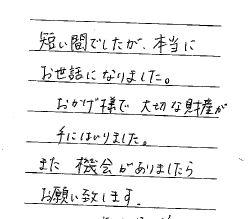 短い間でしたが、本当に
お世話になりました。
おかげ様で 大切な財産が
手にはいりました。
また 機会がありましたら
お願い致します。